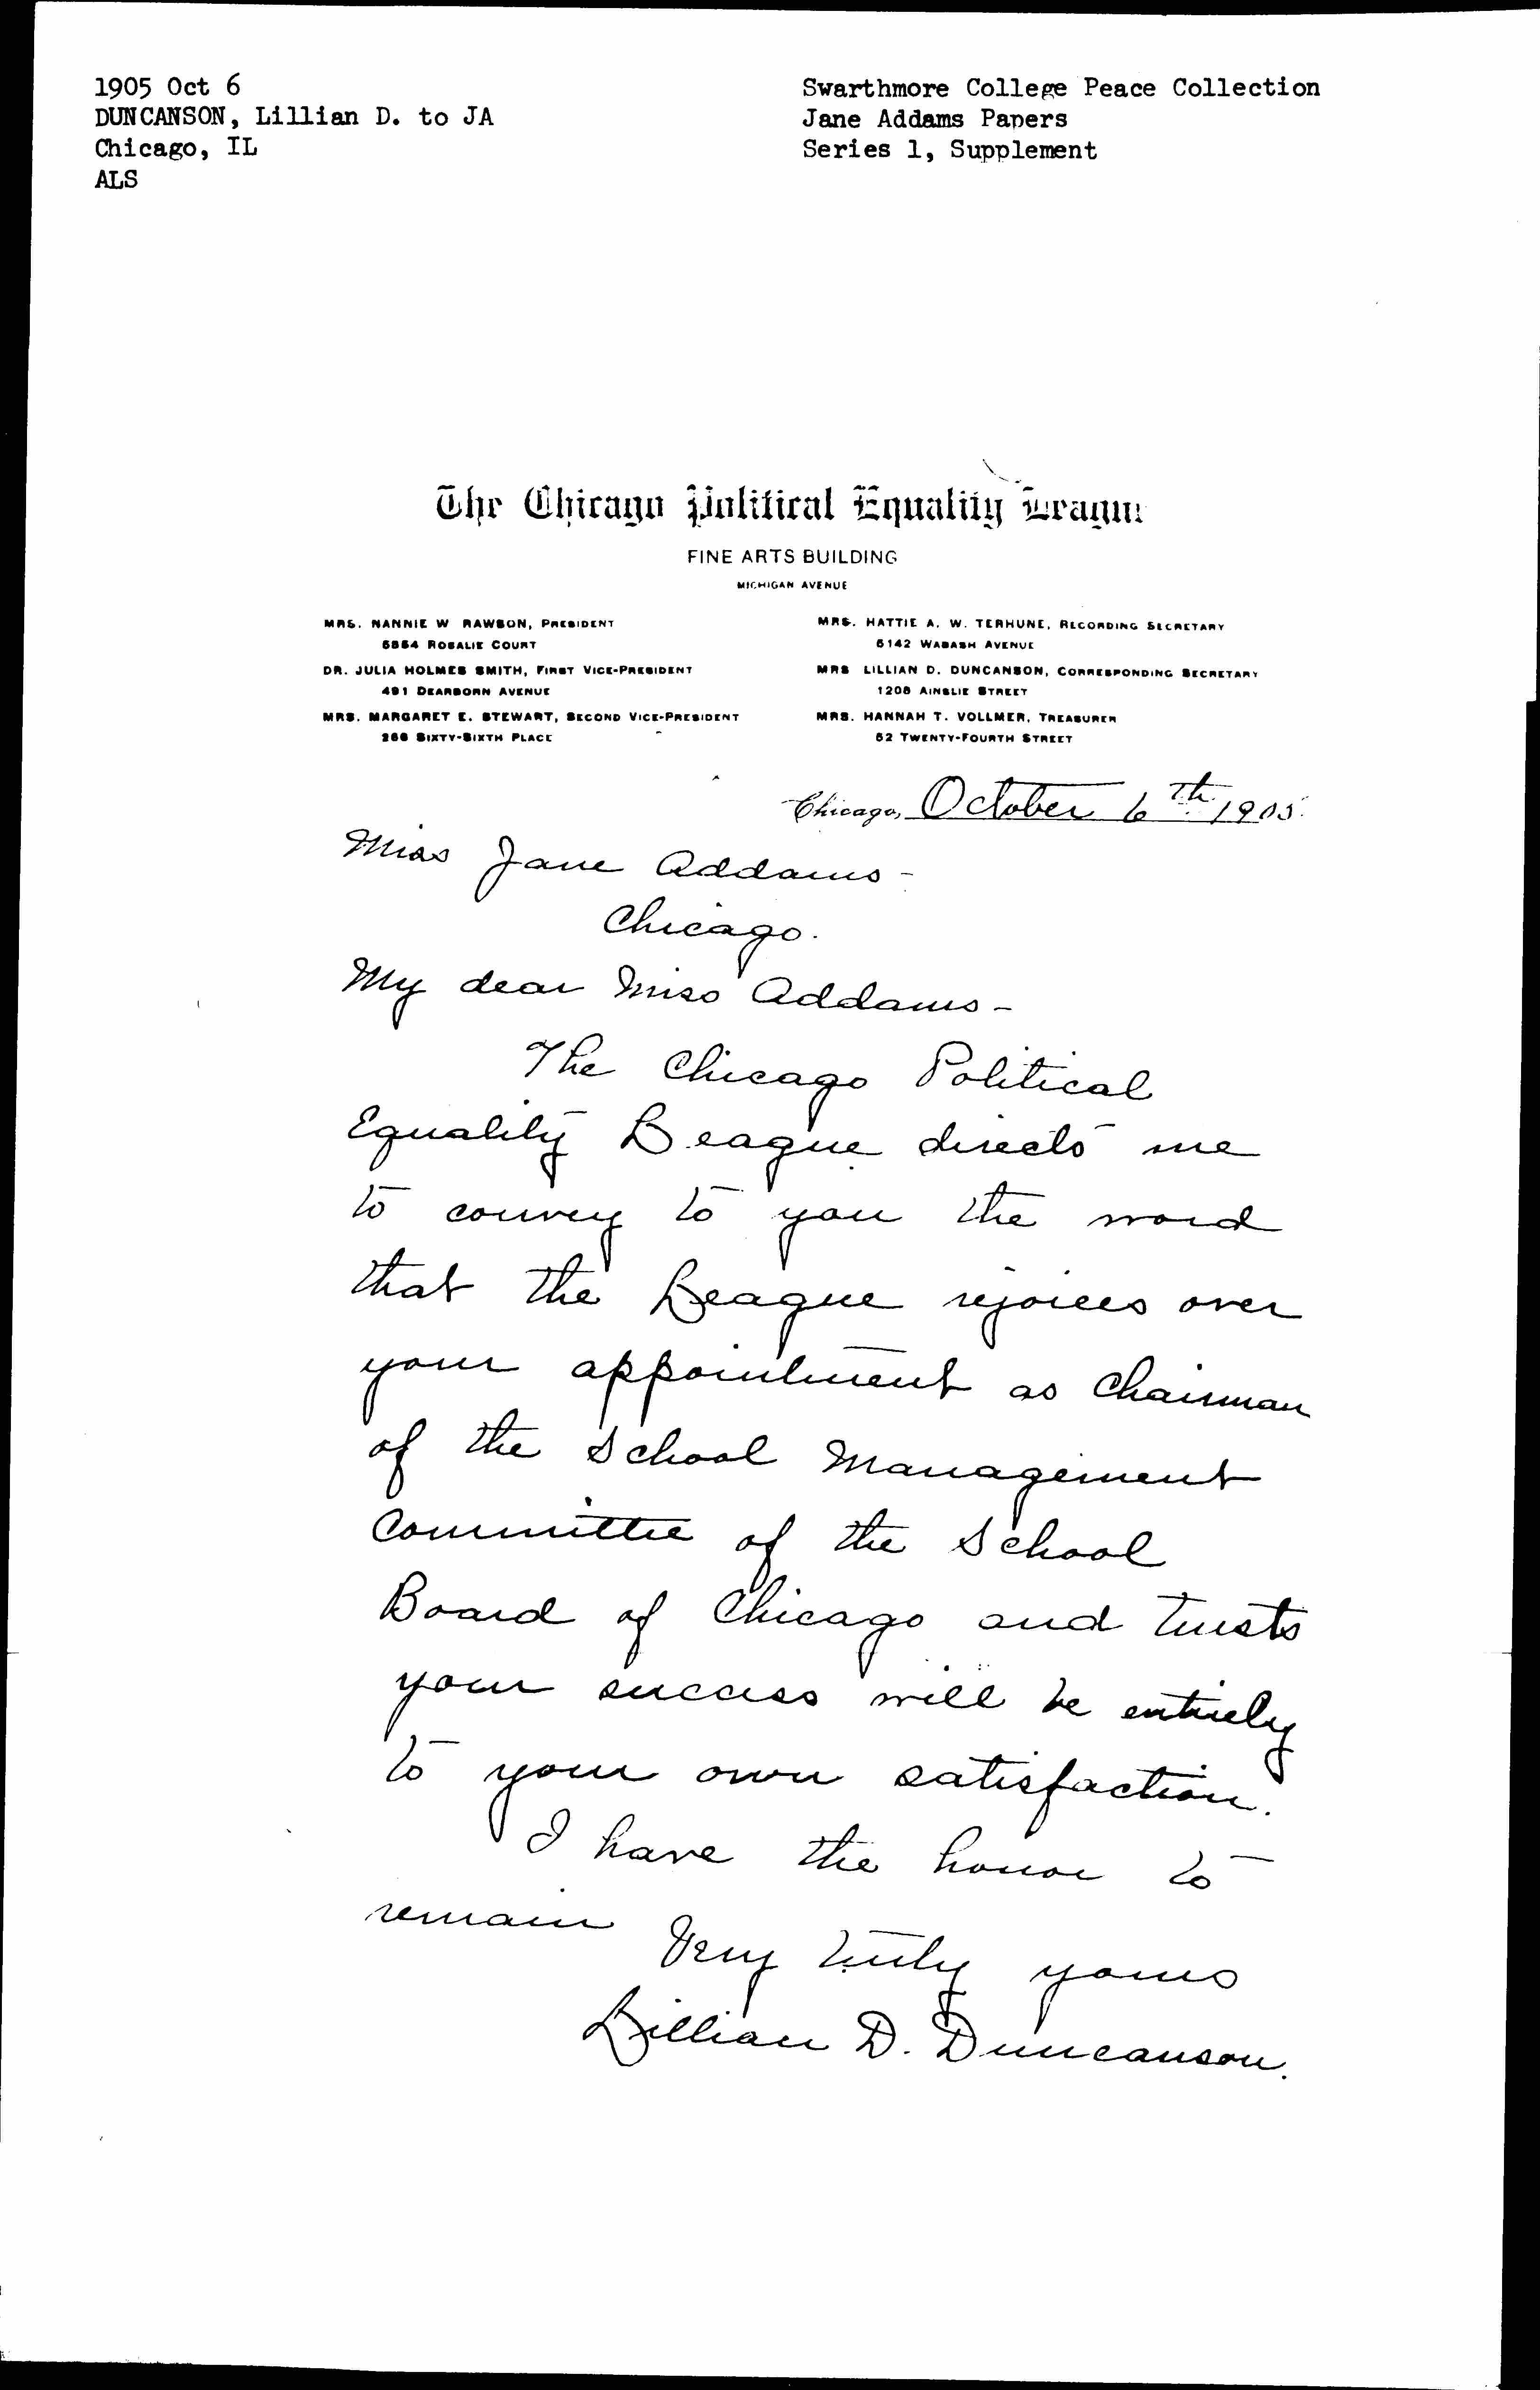 1905 Oct 6
DUNCANSON, Lillian D. to JA
Chicago, IL
ALS
Swarthmore College Peace Collection
Jane Addams Papers
Series 1, Supplement
The Chicago Political Equality League
FINE ARTS BUILDING
MICHIGAN AVENUE
MRS. NANNIE W RAWSON, PRESIDENT
ROSALIE COURT
DR. JULIA HOLMES SMITH, FIRST VICE-PRESIDENT
491 DEARBORN AVENUE
MRS. MARGARET E. STEWART, SECOND VICE-PRESIDENT
SIXTY-SIXTH PLACE
MRS. HATTIE A. W. TERHUNE, RECORDING SECRETARY
WABASH AVENUE
MRS LILLIAN D. DUNCANSON, CORRESPONDING SECRETARY
AINSLIE STREET
MRS. HANNAH T. VOLLMER, TREASURER
TWENTY-FOURTH STREET
Chicago, October 6th 1905.
Miss Jane Addams -
Chicago.
My dear Miss Addams -
The Chicago Political
Equality League directs me
to convey to you the word
that the League rejoices over
your appointment as Chairman
of the School Management
Committee of the School
Board of Chicago and trusts
your success will be entirely
to your own satisfaction.
I have the honor to
remain
Very truly yours
Lillian D. Duncanson.